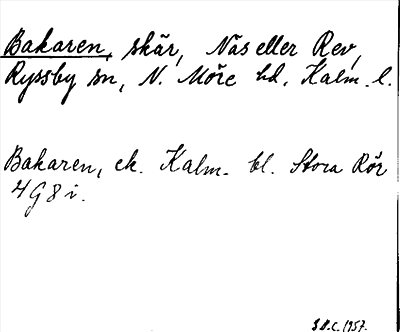 Bakaren, skär, Näs eller Rev,
Ryssby sn, N. Möre hd. Kalm. l.
Bakaren, ek. Kalm. bl. Stora Rör
4G8i.
S.D.C. 1957.